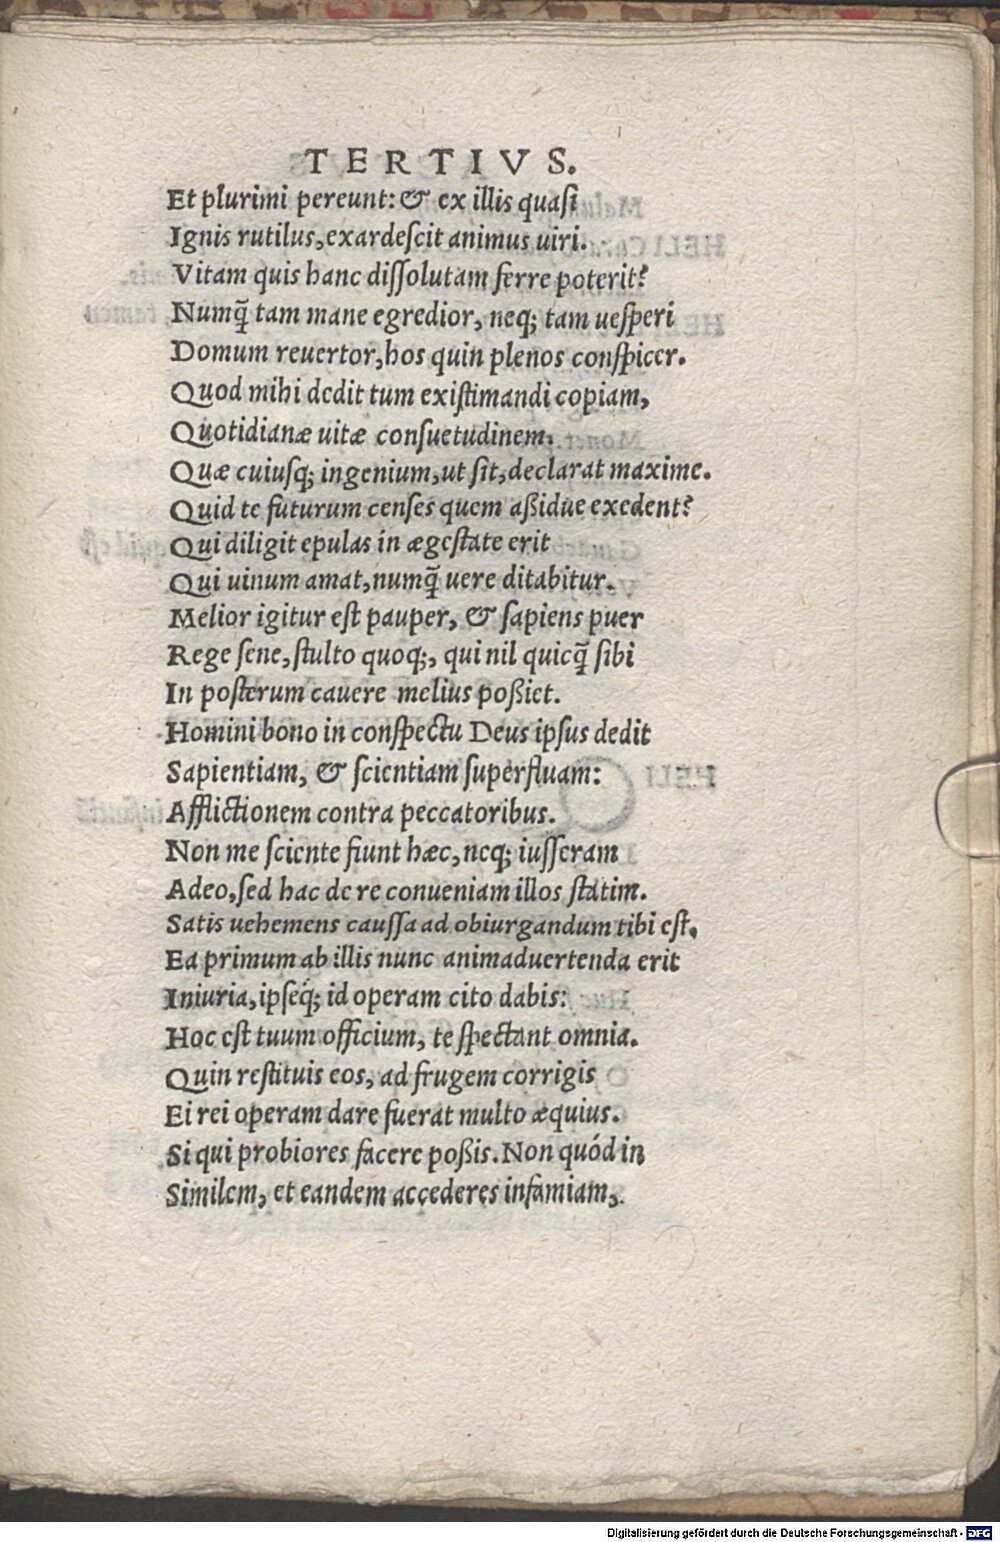 TERTIVS.
Et plurimi pereunt: & ex illis quasi
Ignis rutilus, exardescit animus uiri.
Vitam quis hanc dissolutam ferre poterit?
Numq̃ tam mane egredior, neq; tam uesperi
Domum reuertor, hos quin plenos conspicer.
Quod mihi dedit tum existimandi copiam,
Quotidianæ uitæ consuetudinem.
Quæ cuiusq; ingenium, ut sit, declarat maxime.
Quid te futurum censes quem aßidue exedent?
Qui diligit epulas in ægestate erit
Qui uinum amat, numq̃ uere ditabitur.
Melior igitur est pauper, & sapiens puer
Rege sene, stulto quoq;, qui nil quicq̃ sibi
In posterum cauere melius poßiet.
Homini bono in conspectu Deus ipsus dedit
Sapientiam, & scientiam superfluam:
Afflictionem contra peccatoribus.
Non me sciente fiunt hæc, neq; iusseram
Adeo, sed hac de re conueniam illos statim.
Satis uehemens caussa ad obiurgandum tibi est.
Ea primum ab illis nunc animaduertenda erit
Iniuria, ipseq́; id operam cito dabis:
Hoc est tuum officium, te spectant omnia.
Quin restituis eos, ad frugem corrigis
Ei rei operam dare fuerat multo æquius.
Si qui probiores facere poßis. Non quód in
Similem, et eandem accederes infamiam,.
Digitalisierung gefördert durch die Deutsche Forschungsgemeinschaft - DFG